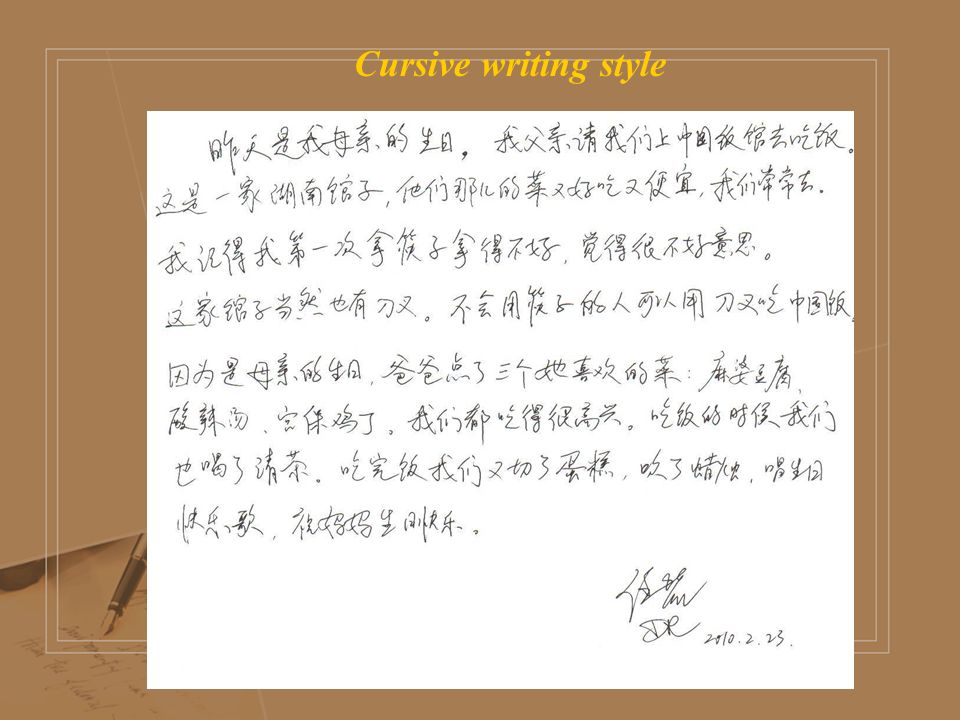 Cursive writing style
昨天是我母亲的生日，我父亲请我们上中国饭馆去吃饭。
这是一家湖南馆子，他们那儿的菜又好吃又便宜，我们常常去。
我记得我第一次拿筷子拿得不好，觉得很不好意思。
这家馆子当然也有刀叉。不会用筷子的人可以用刀叉吃中国饭。
因为是母亲的生日，爸爸点了三个她喜欢的菜：麻婆豆腐、
酸辣汤、宫保鸡丁。我们都吃得很高兴。吃饭的时候我们
也喝了清茶。吃完饭我们又切了蛋糕，吹了蜡烛，唱生日
快乐歌，祝妈妈生日快乐。
2010.2.23.